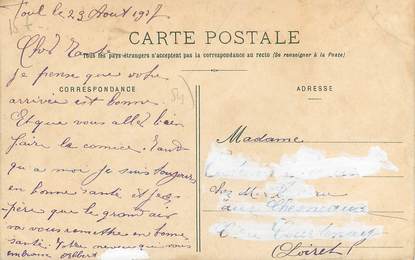 Toul le 29 Aout 1907
CARTE POSTALE
Tous les pays étrangers n'acceptent pas la correspondance au recto (Se renseigner à la Poste)
CORRESPONDANCE
ADRESSE
Cher Tante
je pense que votre
arrivée est bonne.
Et que vous allez bien
faire la comice. Tand
qu a moi je suis toujours
en bonne santé et j'es
père que le grand air
va vous remettre en bonne
santé. Votre neveu qui vous
embrasse Albert
Madame
chez M.
Loiret